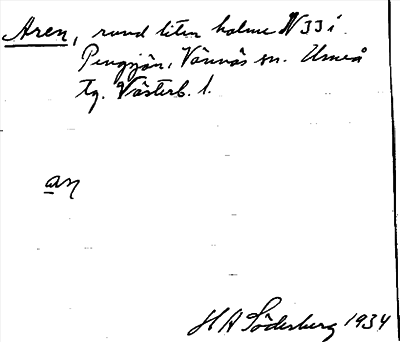 Aren, rund liten holme N 33 i
Pengsjön, Vännäs sn. Umeå
tg. Västerb. l.
an
H A Söderberg 1934